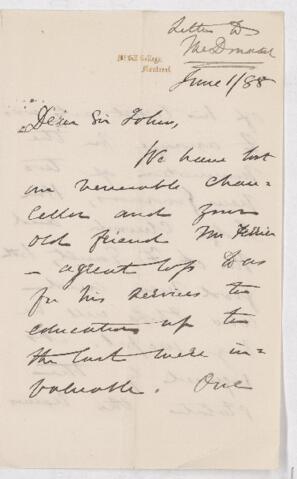 Letter to
McDonald
McGill College,
Montreal
June 1/88
Dear Sir John,
We have lost
our venerable chan-
cellor and your
old friend Mr Ferrier
- a great loss to us
for his services to
education up to
the last were in=
valuable. One